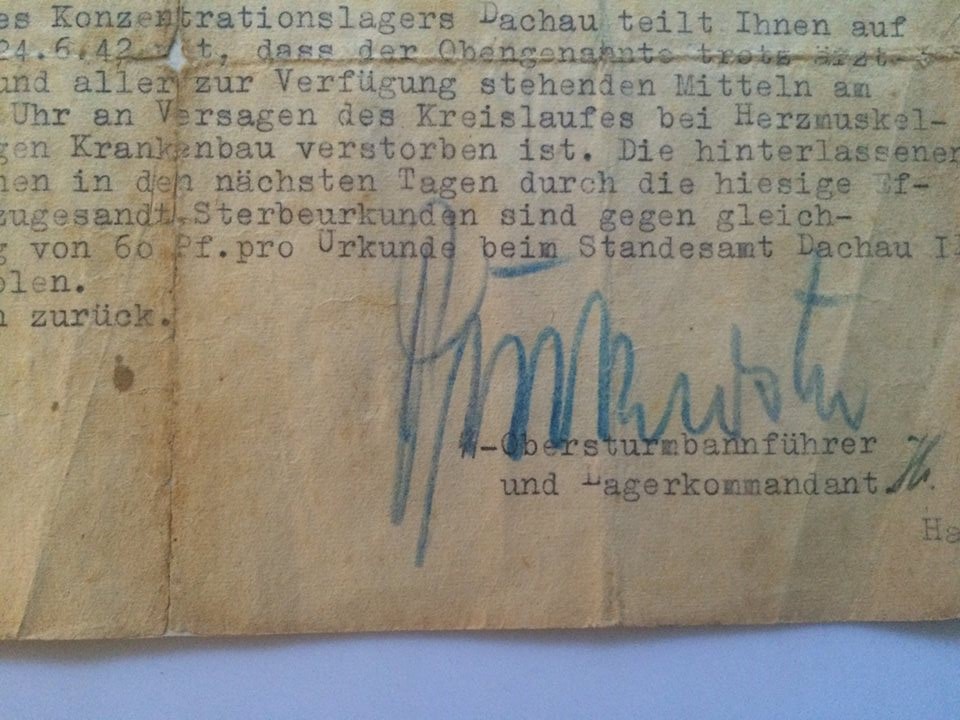 es Konzentrationslagers Dachau teilt Ihnen auf
24.6.42 mit, dass der Obengenannte trotz ärzt-
und aller zur Verfügung stehenden Mitteln am
Uhr an Versagen des Kreislaufes bei Herzmuskel-
gen Krankenbau verstorben ist. Die hinterlassenen
nen in den nächsten Tagen durch die hiesige Ef-
zugesandt.Sterbeurkunden sind gegen gleich-
g von 60 Pf.pro Urkunde beim Standesamt Dachau II
olen.
n zurück.
-Obersturmbannführer
und Lagerkommandant
Ha